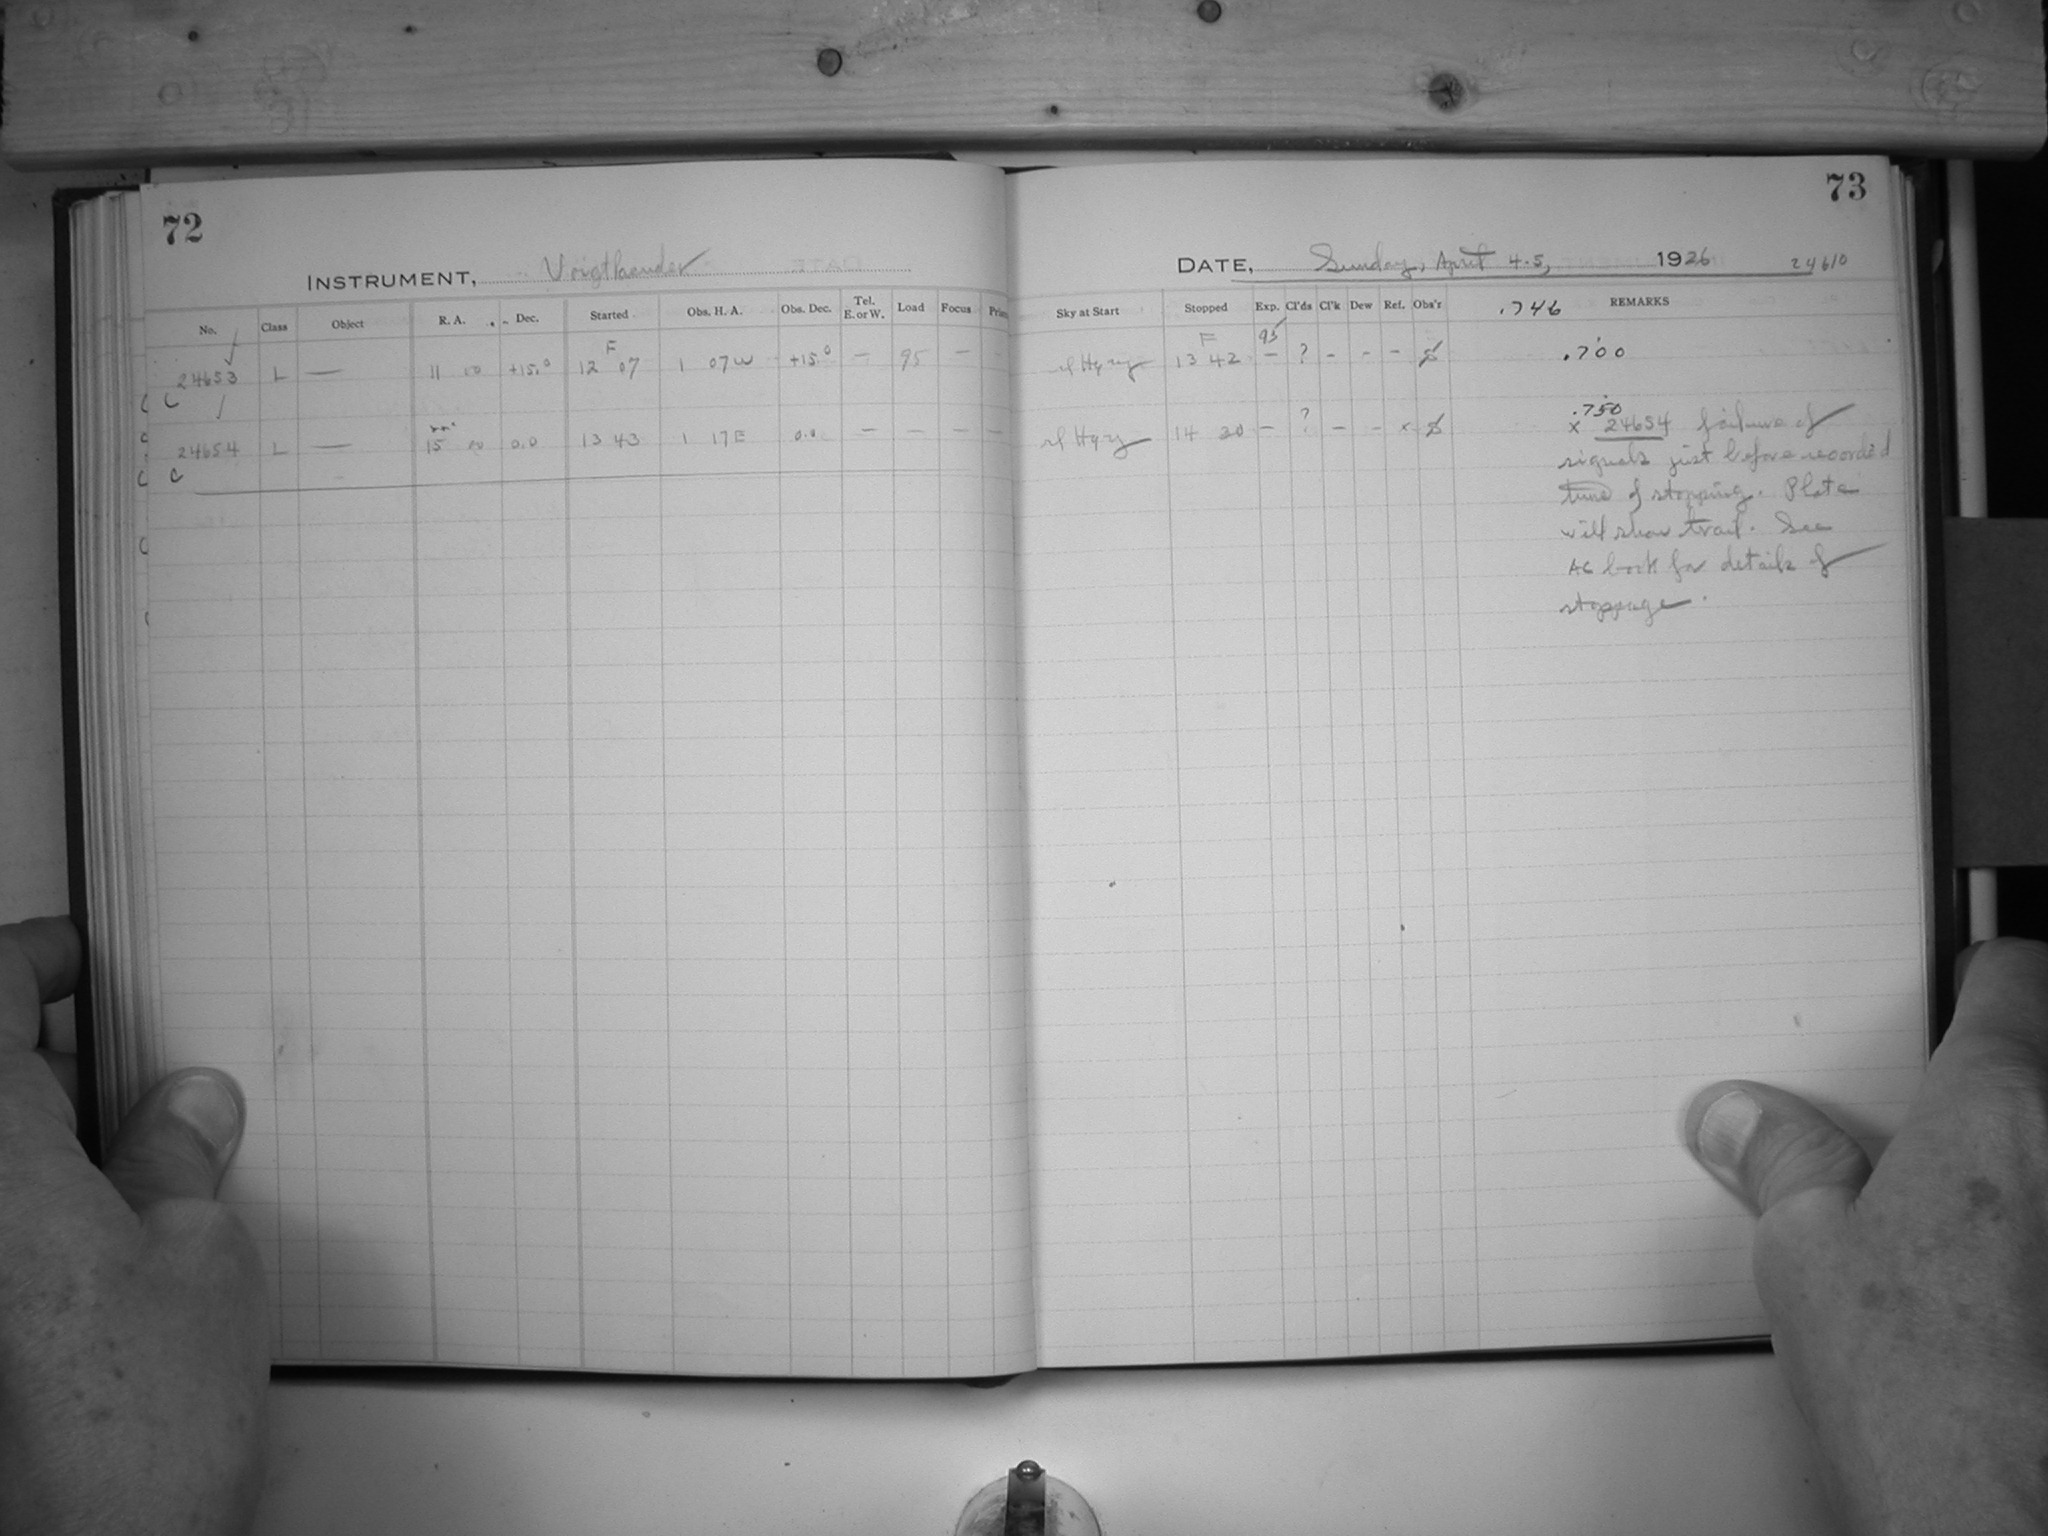 72
INSTRUMENT, Voigtlander
No. Class Object R. A. Dec. Started Obs. H. A. Obs. Dec. Tel. E. or W. Load Focus
24653 L — 11 00 +15.0 F 12 07 1 07 W +15.0 — 95 —
C
24654 L — 15 00 0.0 13 43 1 17 E 0.0 — — — —
C
73
DATE, Sunday, April 4-5, 1926 24610
Sky at Start Stopped Exp. Cl'ds Cl'k Dew Ref. Obs'r .746 REMARKS
sl Hazy F 13 42 95 — ? - - - .700
sl Hazy 14 20 — ? — - x .750
x 24654 failure of
signals just before recorded
time of stopping. Plate
will show trail. See
AC book for details of
stoppage.